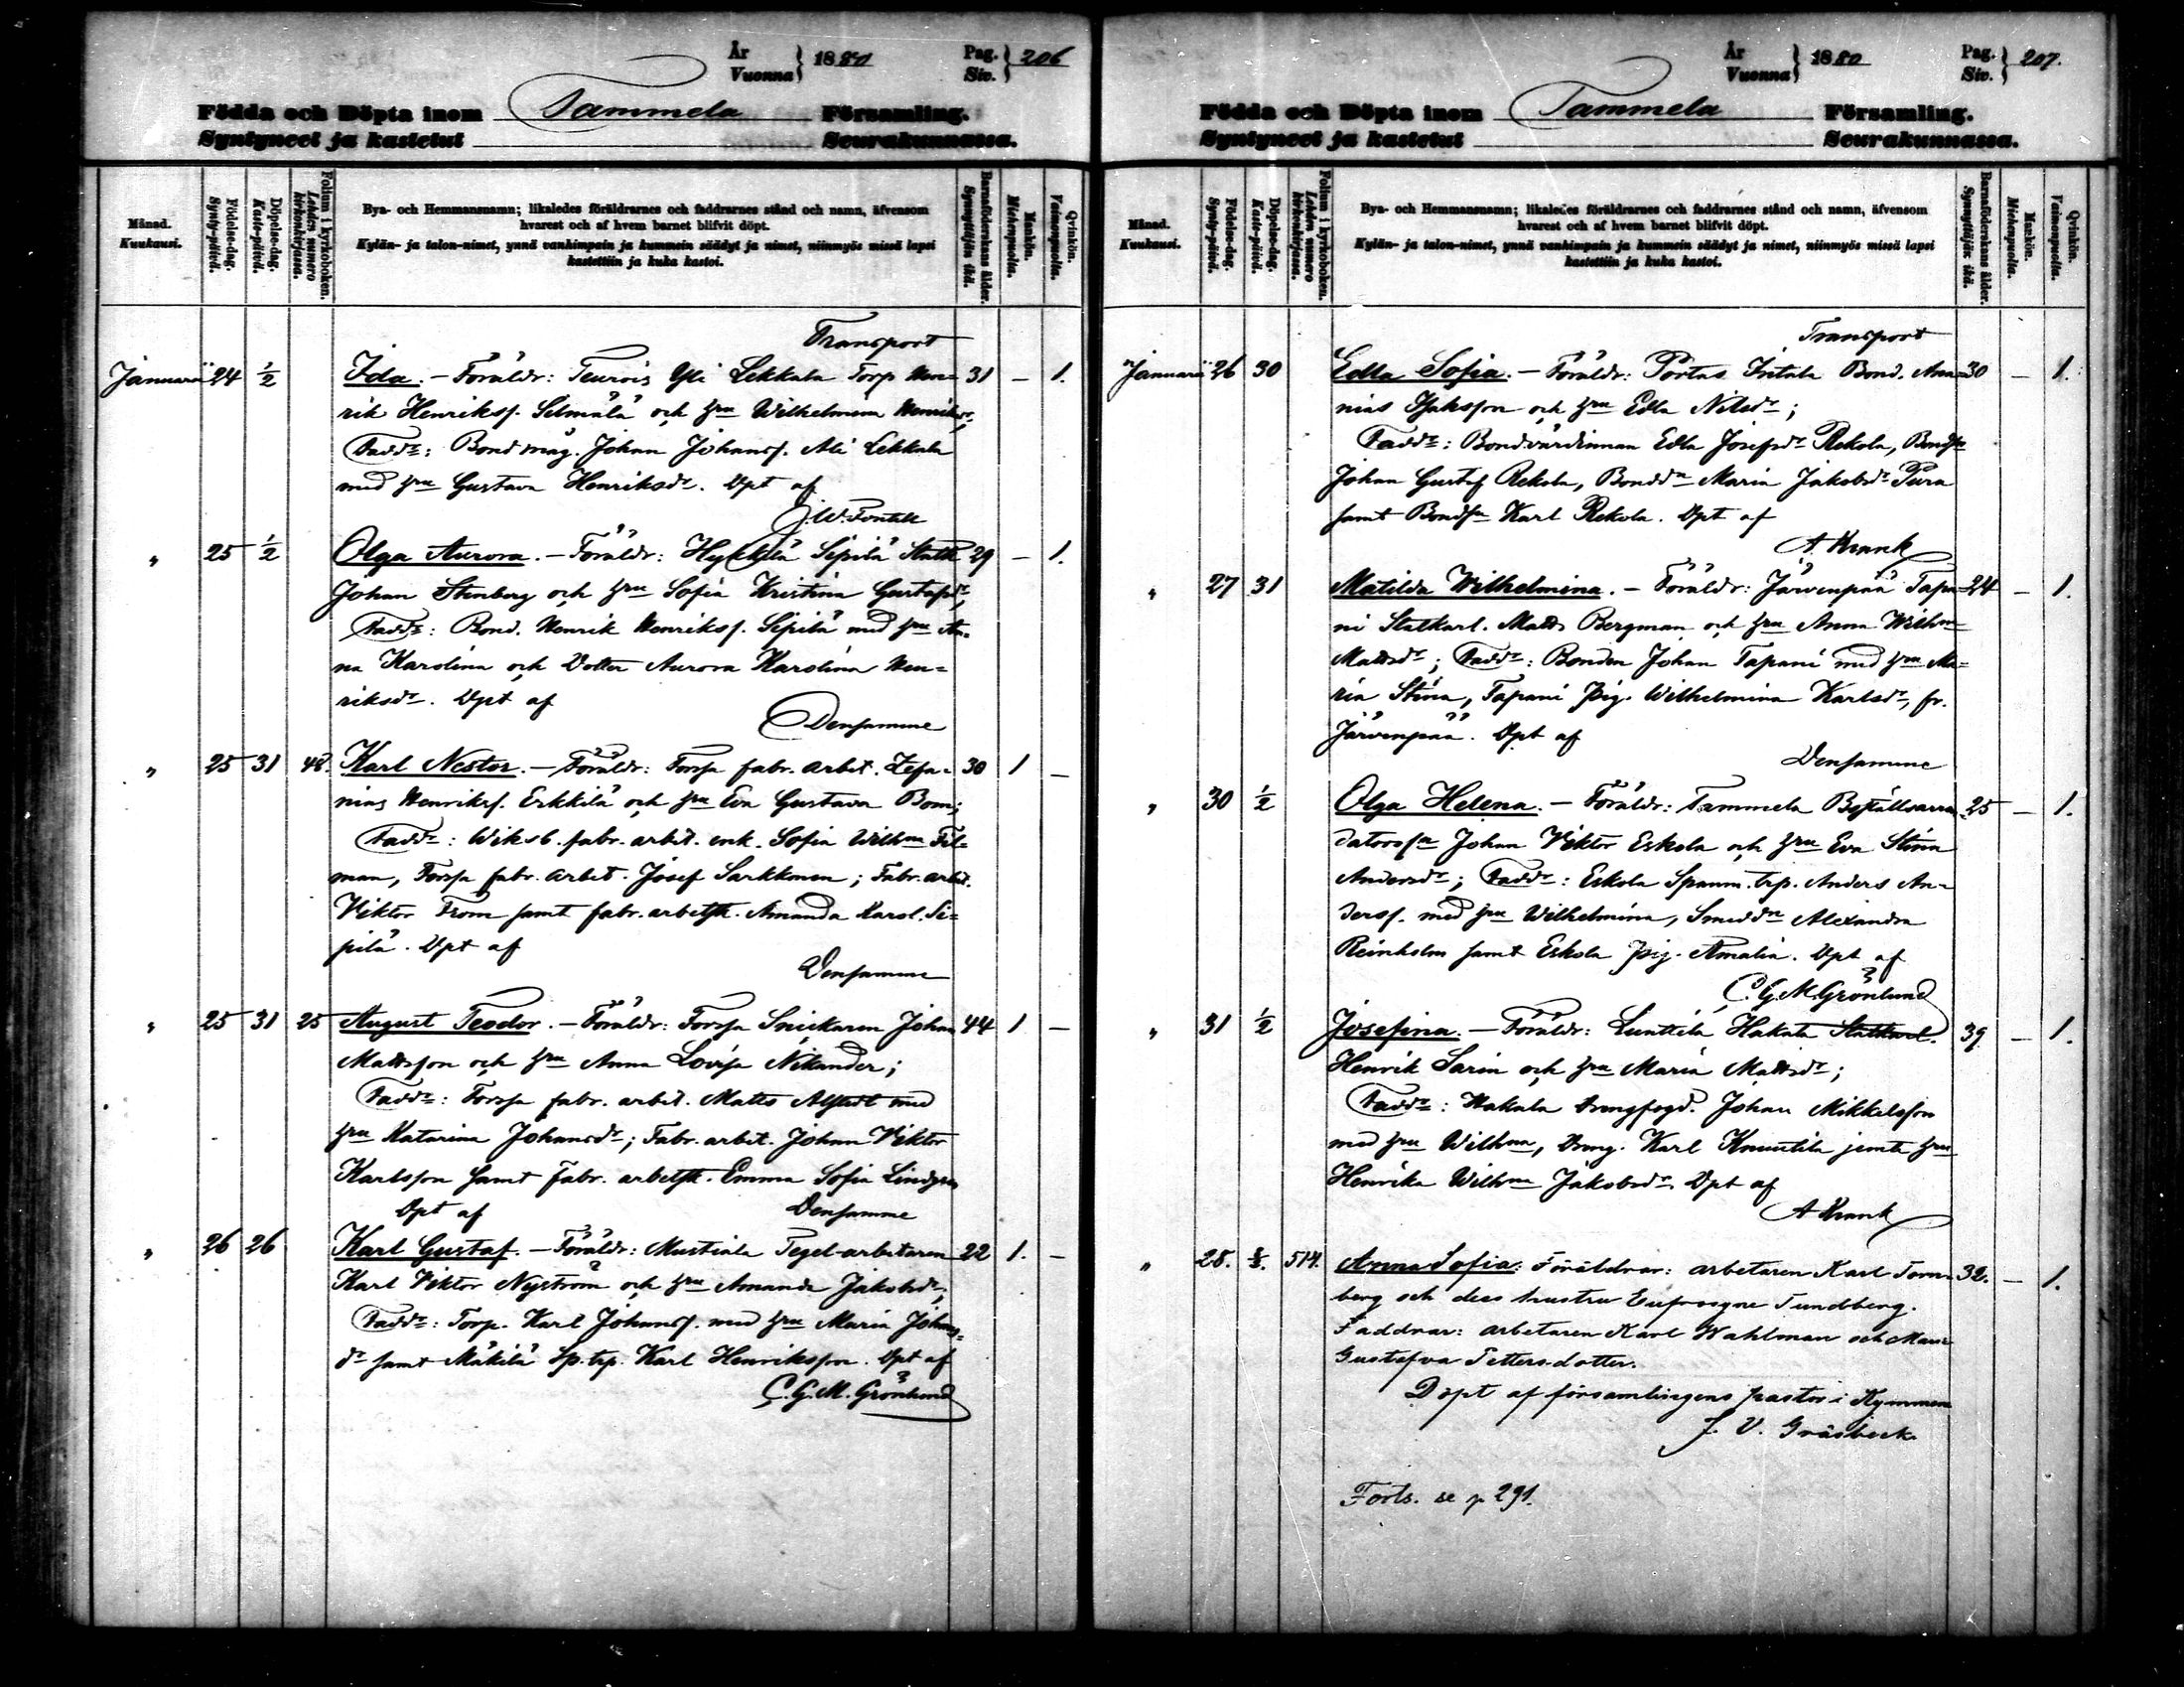 År
Vuonna } 1880
Pag.
Siv. } 206
Födda och Döpta inom Tammela Församling.
Syntyneet ja kastetut Seurakunnassa.
Månad.
Kuukausi.
Födelse-dag.
Synty-päivä.
Döpelse-dag.
Kaste-päivä.
Folium i kyrkoboken.
Lehden numero kirkonkirjassa.
Bya- och Hemmansnamn; likaledes föräldrarnes och faddrarnes stånd och namn, äfvensom
hvarest och af hvem barnet blifvit döpt.
Kylän- ja talon-nimet, ynnä vanhimpain ja kummein säädyt ja nimet, niinmyös missä lapsi
kastettiin ja kuka kastoi.
Barnaföderskans ålder.
Synnyttäjän ikä.
Mankön.
Miehenpuolta.
Qvinkön.
Vaimonpuolta.
Transport
Januari 24 1/2 Ida. – Föräldr: Teurois Yli Lekkala Torp. Hen- 31 – 1.
rik Henrikss. Selmälä och hru Wilhelmina Henriksdr;
Faddr: Bond.måg. Johan Johanss. Ali Lekkala
med hru Gustava Henriksdr. Dpt af
J. W. Fontell
" 25 1/2 Olga Aurora. – Föräldr: Hykkilä Sipilä Statk 29 – 1.
Johan Stenberg och hru Sofia Kristina Gustafsdr,
Faddr: Bond. Henrik Henrikss. Sipilä med hru An-
na Karolina och Dotter Aurora Karolina Hen-
riksdr. Dpt af
Densamme
" 25 31 48. Karl Nestor. – Föräldr: Forssa fabr. arbet. Zefa- 30 1 –
nias Henrikss. Erkkilä och hru Eva Gustava Bom;
Faddr: Wiksb. fabr. arbet. enk. Sofia Wilhna Fil-
man, Forssa fabr. arbet. Josef Sarkkonen; Fabr. arbet.
Viktor From samt fabr. arbetsk. Amanda Karol. Si-
pilä. Dpt af
Densamme
" 25 31 25 August Teodor. – Föräldr: Forssa Snickaren Johan 44 1 –
Mattsson och hru Anna Lovisa Nikander;
Faddr: Forssa fabr. arbet. Matts Alstedt med
hru Katarina Johansdr; Fabr. arbet. Johan Viktor
Karlsson samt Fabr. arbetsk. Emma Sofia Lindgren
Dpt af Densamme
" 26 26 Karl Gustaf. – Föräldr: Mustiala Tegel-arbetaren 22 1. –
Karl Viktor Nyström och hru Amanda Jakobsdr;
Faddr: Torp. Karl Johanss. med hru Maria Johans-
dr samt Mäkilä Sp. trp. Karl Henriksson. Dpt af
C. G. M. Grönlund
År
Vuonna } 1880
Pag.
Siv. } 207.
Födda och Döpta inom Tammela Församling.
Syntyneet ja kastetut Seurakunnassa.
Månad.
Kuukausi.
Födelse-dag.
Synty-päivä.
Döpelse-dag.
Kaste-päivä.
Folium i kyrkoboken.
Lehden numero kirkonkirjassa.
Bya- och Hemmansnamn; likaledes föräldrarnes och faddrarnes stånd och namn, äfvensom
hvarest och af hvem barnet blifvit döpt.
Kylän- ja talon-nimet, ynnä vanhimpain ja kummein säädyt ja nimet, niinmyös missä lapsi
kastettiin ja kuka kastoi.
Barnaföderskans ålder.
Synnyttäjän ikä.
Mankön.
Miehenpuolta.
Qvinkön.
Vaimonpuolta.
Transport
Januari 26 30 Edla Sofia. – Föräldr: Portas Intala Bond. Ana- 30 – 1.
nias Isaksson och hru Edla Nilsdr;
Faddr: Bond.värdinnan Edla Josefsdr Rekola, Bondsn
Johan Gustaf Rekola, Bonddr Maria Jakobsdr Pura
samt Bondsn Karl Rekola. Dpt af
A. Krank
" 27 31 Matilda Wilhelmina. – Föräldr: Järvenpää Tapa- 24 – 1.
ni Statkarl. Matts Bergman och hru Anna Wilhna
Mattsdr; Faddr: Bonden Johan Tapani med hru Ma-
ria Stina, Tapani pig. Wilhelmina Karlsdr, fr.
Järvenpää. Dpt af
Densamme
" 30 1/2 Olga Helena. – Föräldr: Tammela Boställsarren- 25 – 1.
datorssn Johan Viktor Eskola och hru Eva Stina
Andersdr; Faddr: Eskola Spanm. trp. Anders An-
derss. med hru Wilhelmina, Smeddr Alexandra
Reinholm samt Eskola pig. Amalia. Dpt af
C. G. M. Grönlund
" 31 1/2 Josefina. – Föräldr: Lunttila Hakala Statkarl. 39 – 1.
Henrik Sarin och hru Maria Mattsdr;
Faddr: Hakala Drengfogd. Johan Mikkelsson
med hru Wilhna, Dreng. Karl Knuutila jemte hru
Henrika Wilhna Jakobsdr. Dpt af
A Krank
" 28. 514. Anna Sofia: Föräldrar: arbetaren Karl Torn- 32. – 1.
berg och dess hustru Eufrosyne Sundberg.
Faddrar: arbetaren Karl Wahlman och
Gustafva Pettersdotter.
Döpt af församlingens pastor i Kymmene
J. V. Gräsbeck.
Forts. se p 291.